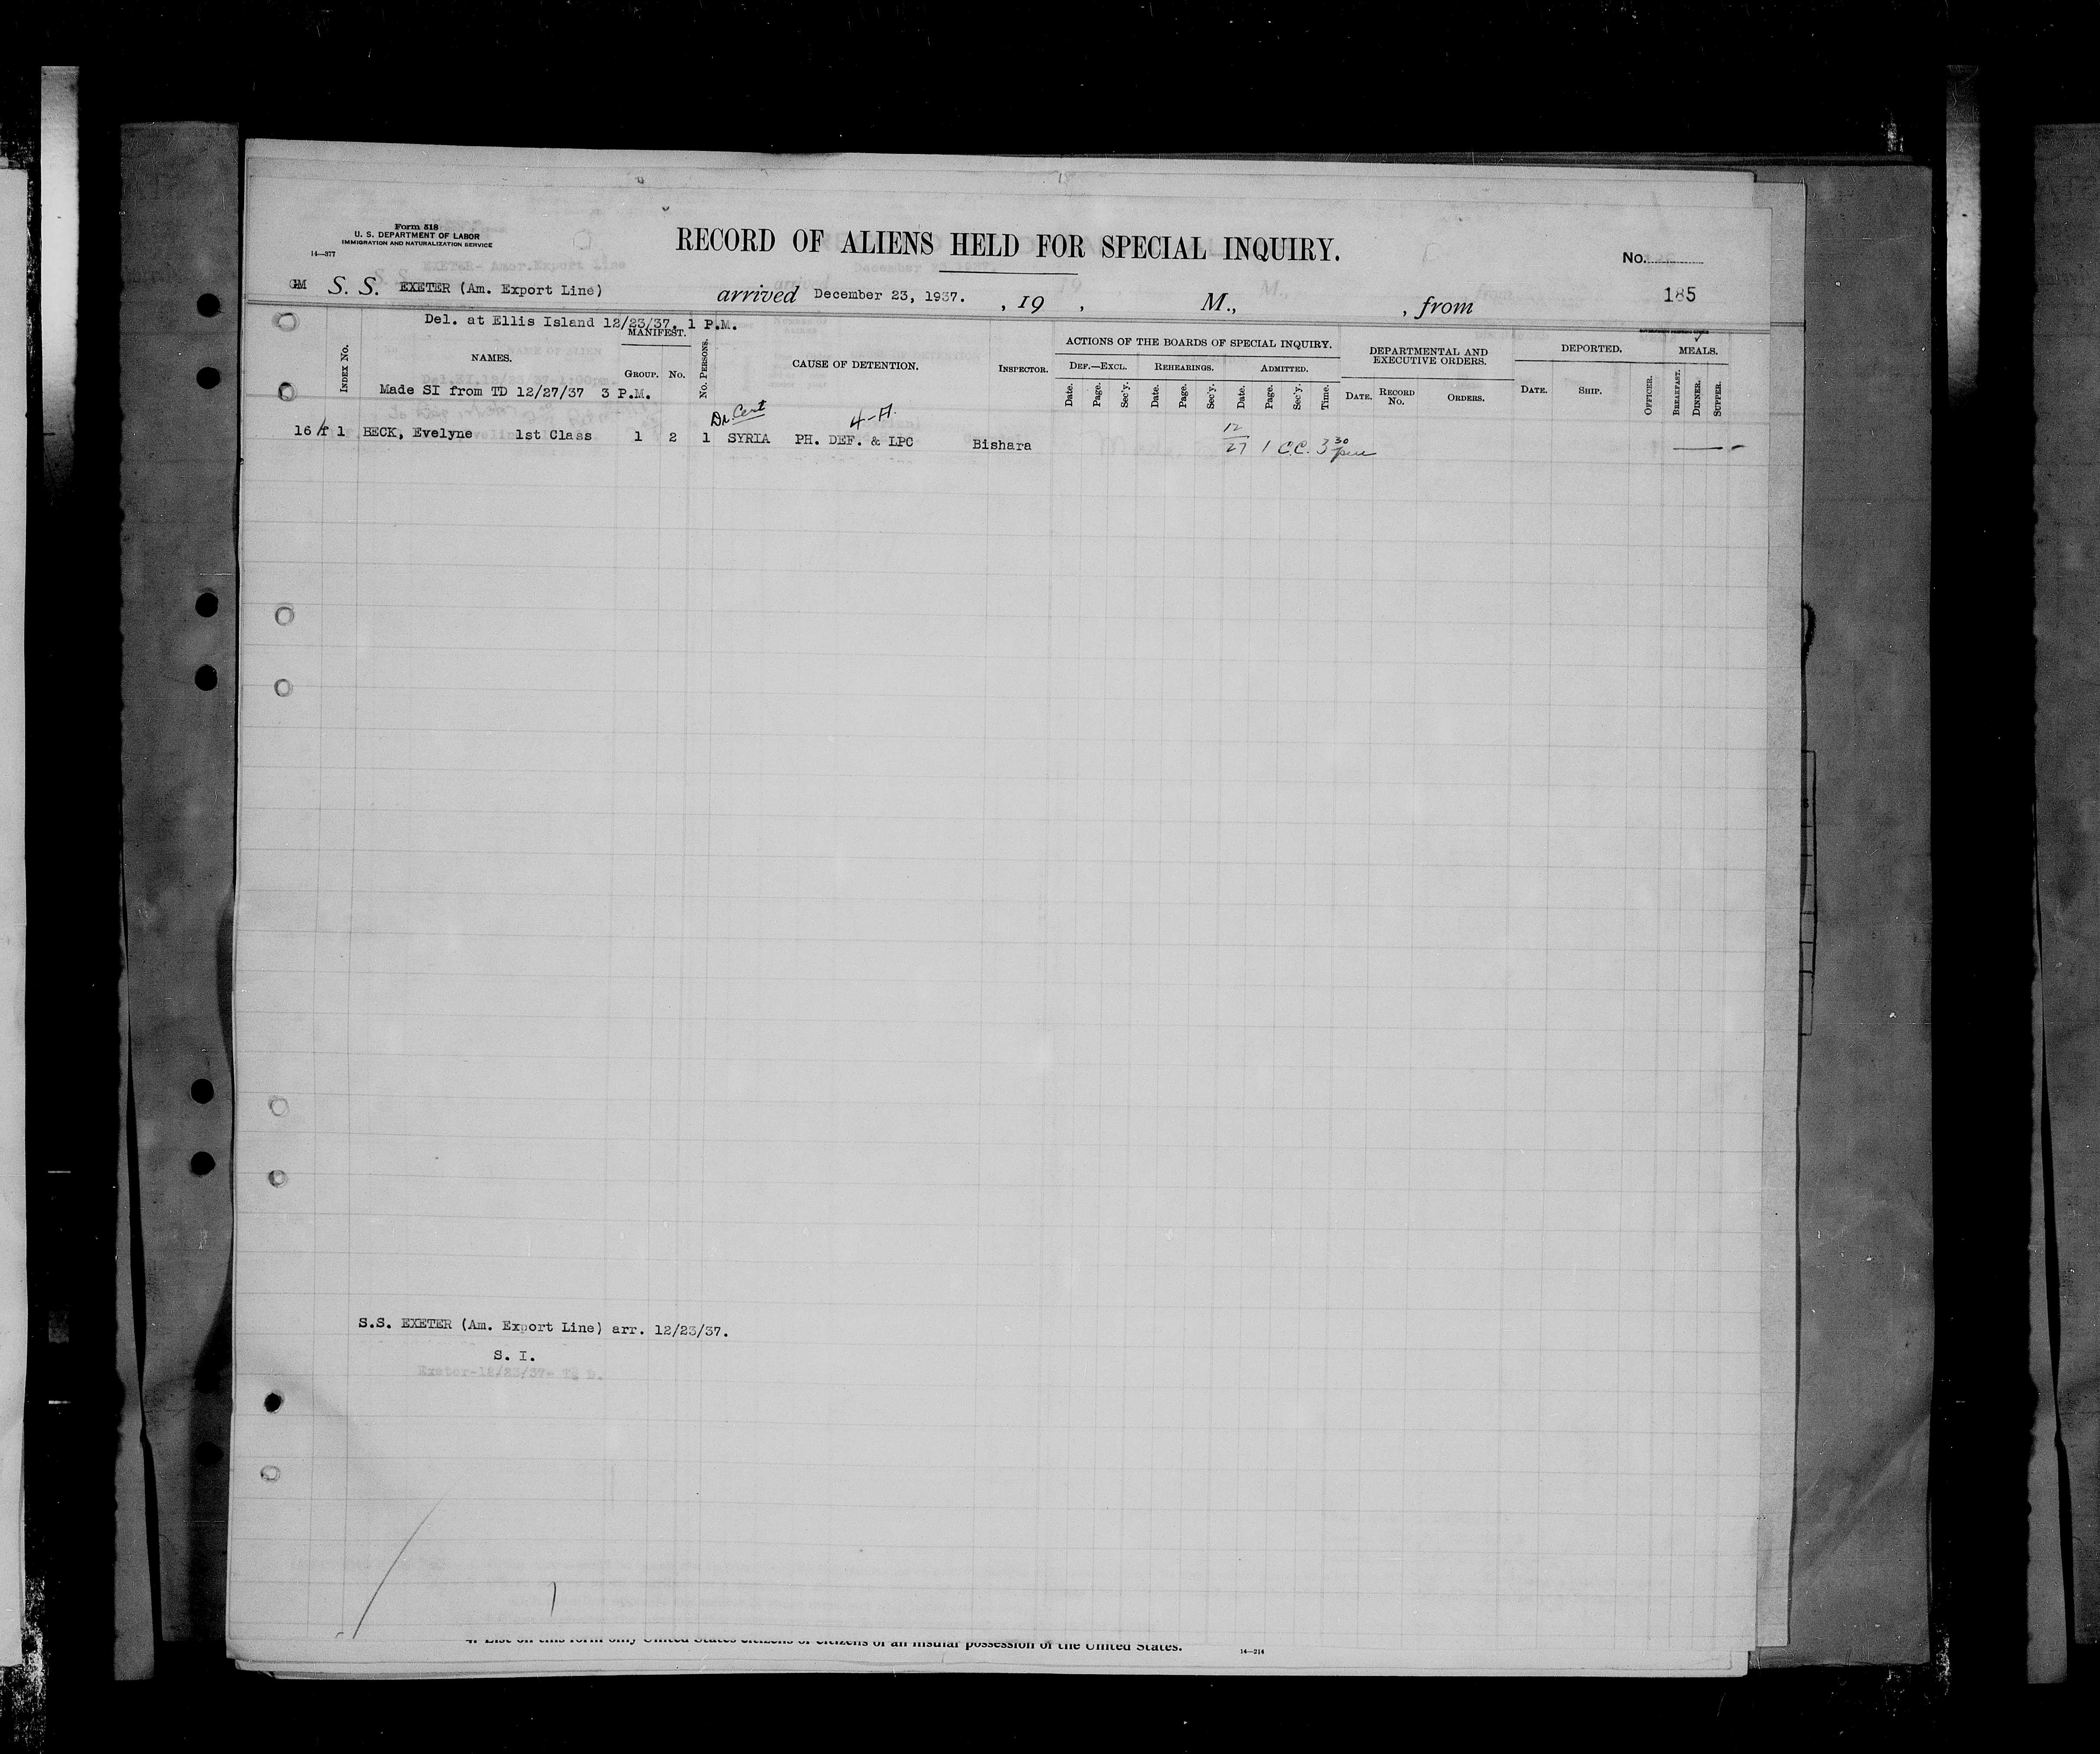 Form 518
U. S. DEPARTMENT OF LABOR
IMMIGRATION AND NATURALIZATION SERVICE
14—377
RECORD OF ALIENS HELD FOR SPECIAL INQUIRY.
No.
185
S. S. EXETER (Am. Export Line) arrived December 23, 1937. , 19 , M., , from
Del. at Ellis Island 12/23/37. 1 P.M.
INDEX NO. NAMES. MANIFEST. GROUP. NO. NO. PERSONS. CAUSE OF DETENTION. INSPECTOR. ACTIONS OF THE BOARDS OF SPECIAL INQUIRY. DEPARTMENTAL AND EXECUTIVE ORDERS. DEPORTED. MEALS.
DEF.—EXCL. REHEARINGS. ADMITTED.
Date. Page. Sec'y. Date. Page. Sec'y. Date. Page. Sec'y. Time. DATE. RECORD No. ORDERS. DATE. SHIP. OFFICER. BREAKFAST. DINNER. SUPPER.
Made SI from TD 12/27/37 3 P.M.
Dr. Cert 4-A.
16 1 BECK, Evelyne 1st Class 1 2 1 SYRIA PH. DEF. & LPC Bishara 12/27 1 C.C. 3 30 pm
S.S. EXETER (Am. Export Line) arr. 12/23/37.
S. I.
Exeter-12/23/37-
4. List on this form only United States citizens or citizens of an insular possession of the United States.
14—214